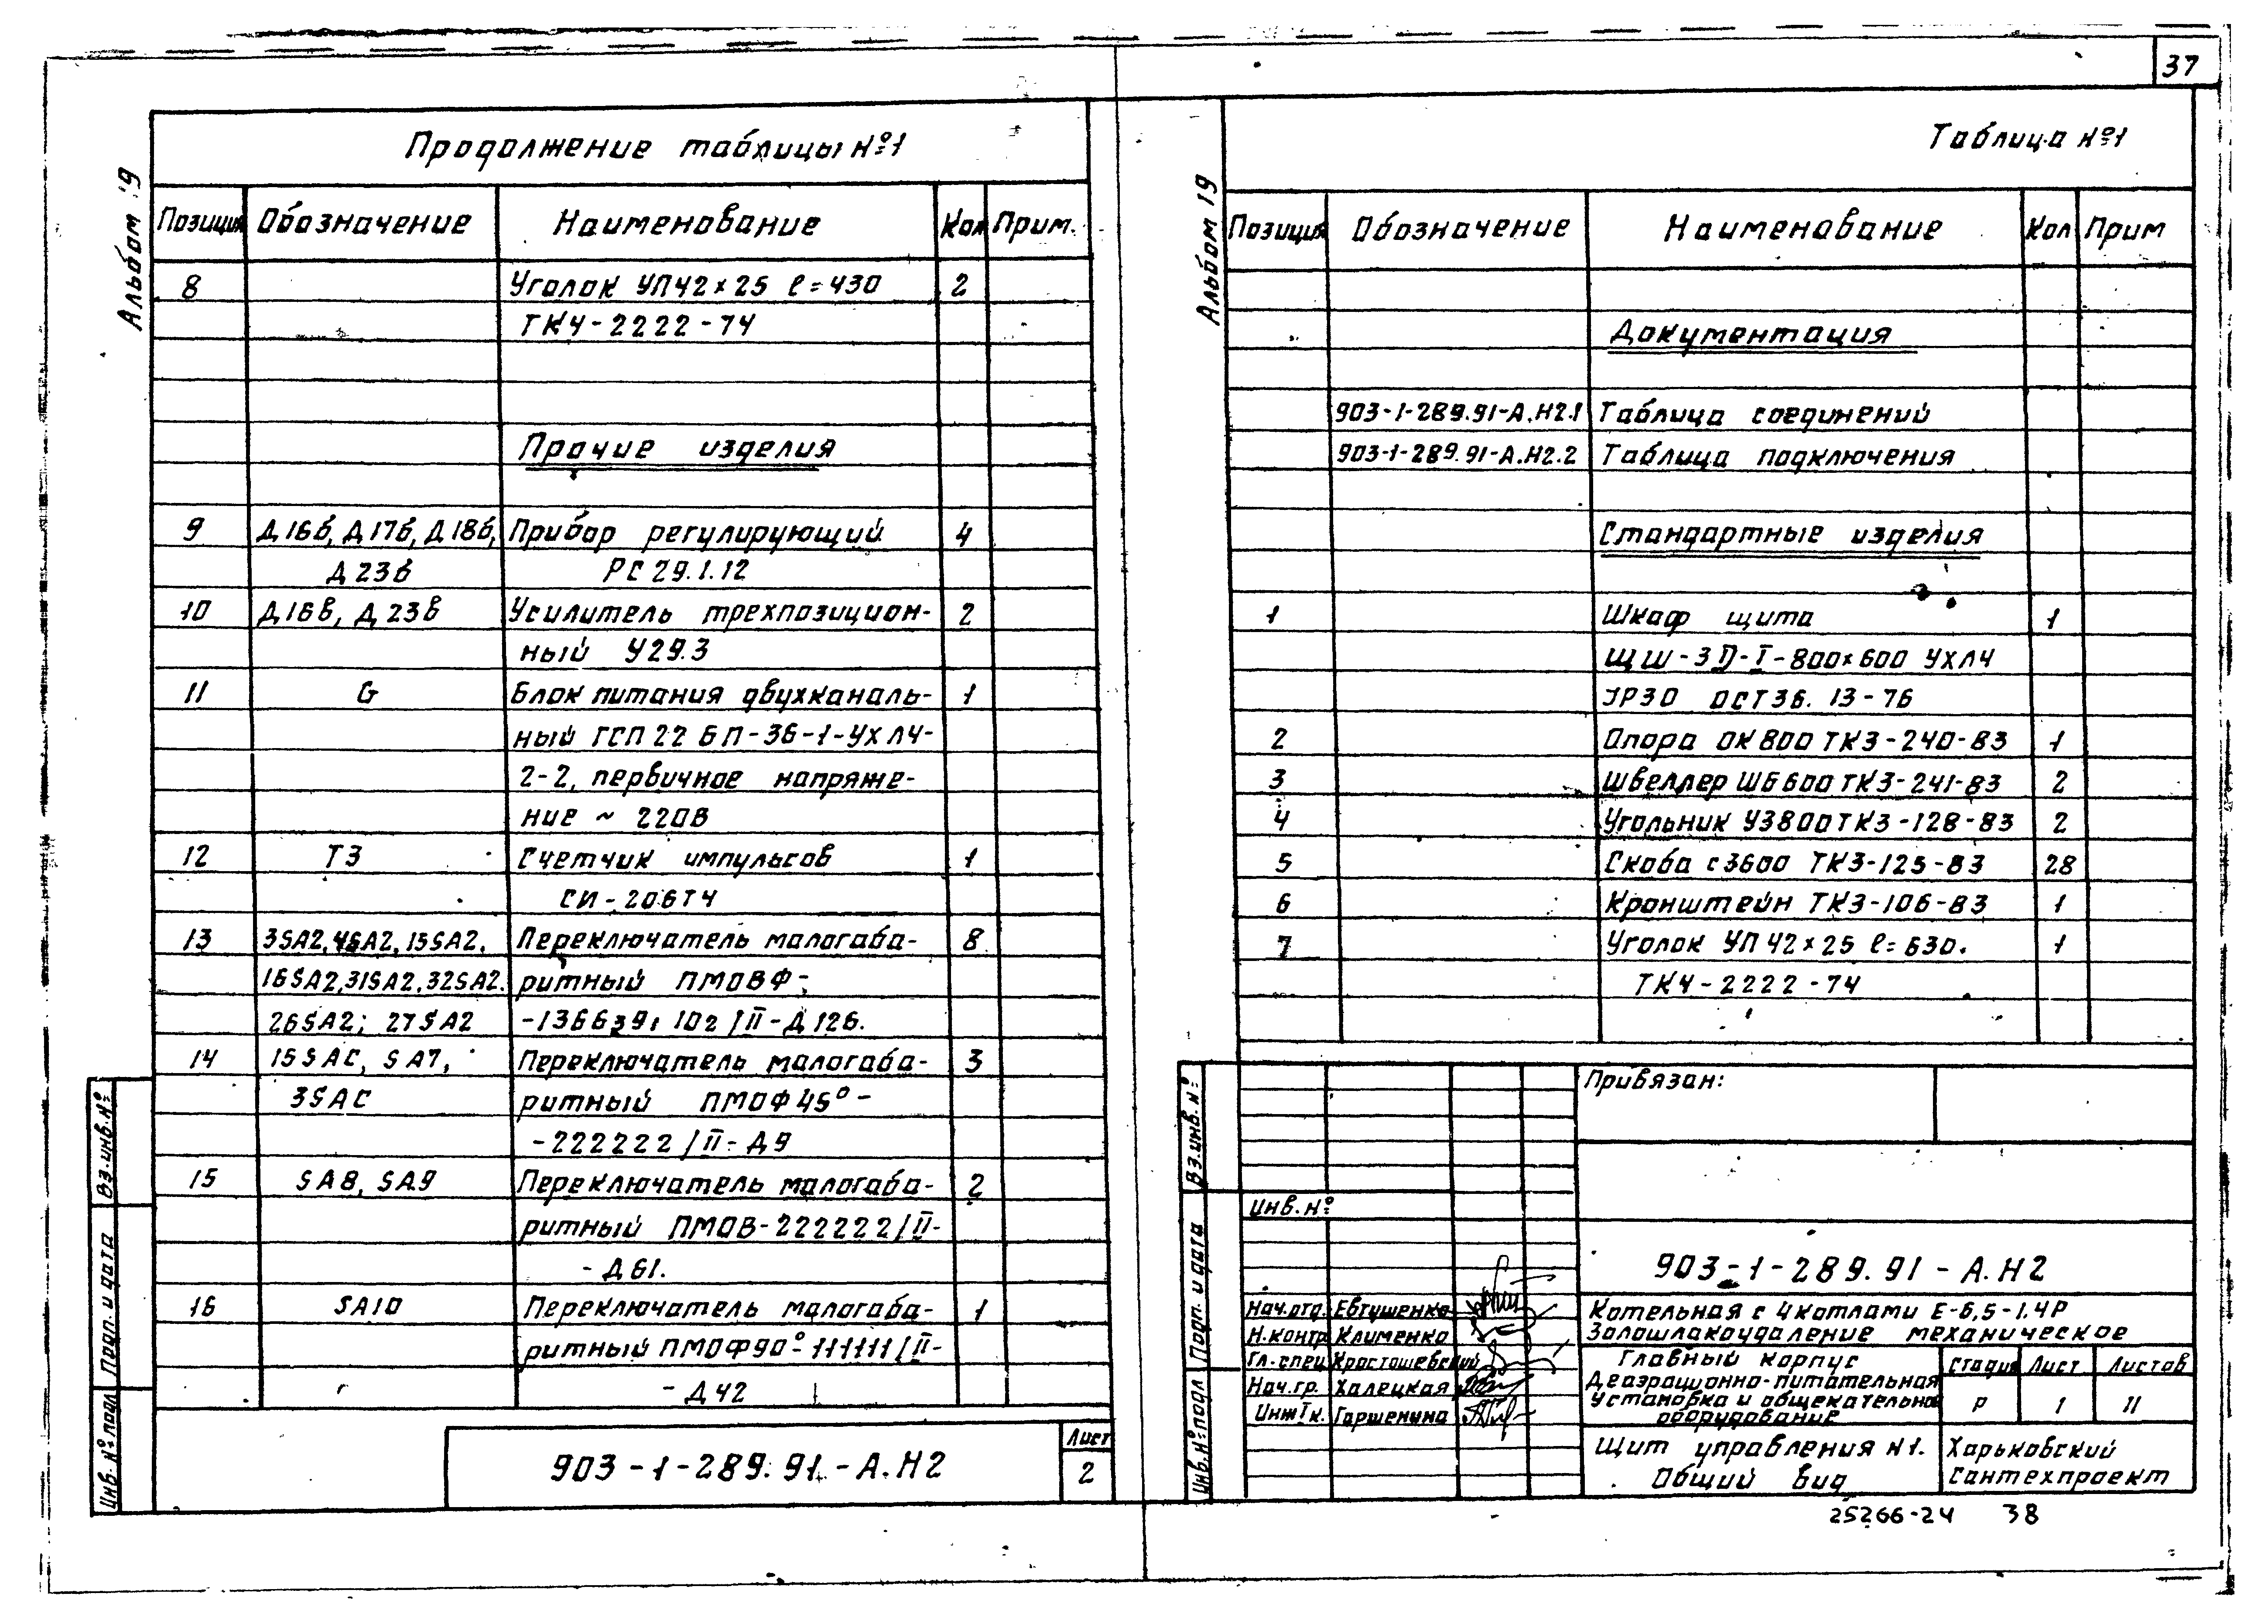 37
Альбом 19
Продолжение таблицы №1
Позиция Обозначение Наименование Кол Прим.
8 Уголок УП42×25 ℓ=430 2
ТК4-2222-74
Прочие изделия
9 Д16б, Д17б, Д18б, Прибор регулирующий 4
Д23б РС29.1.12
10 Д16в, Д23в Усилитель трехпозицион- 2
ный У29.3
11 G Блок питания двухканаль- 1
ный ГСП22 БП-36-1-УХЛ4-
2-2, первичное напряже-
ние ~ 220В
12 Т3 Счетчик импульсов 1
СИ-206Т4
13 3SA2, 4SA2, 15SA2, Переключатель малогаба- 8
16SA2, 31SA2, 32SA2. ритный ПМОВФ-
26SA2; 27SA2 /II-Д126.
14 15SAC, SA7, Переключатель малогаба- 3
3SAC ритный ПМОФ45°-
-222222/II-Д9
15 SA8, SA9 Переключатель малогаба- 2
ритный ПМОВ-222222/II-
-Д61.
16 SA10 Переключатель малогаба- 1
ритный ПМОФ90°-111111/II-
-Д42
903-1-289.91-А.Н2
Лист
2
Вз.инв.№
Подп. и дата
Инв.№подл
Альбом 19
Таблица №1
Позиция Обозначение Наименование Кол Прим
Документация
903-1-289.91-А.Н2.1 Таблица соединений
903-1-289.91-А.Н2.2 Таблица подключения
Стандартные изделия
1 Шкаф щита 1
ЩШ-3Д-I-800×600 УХЛ4
IP30 ОСТ36.13-76
2 Опора ОК800 ТК3-240-83 1
3 Швеллер ШБ600 ТК3-241-83 2
4 Угольник У3800 ТК3-128-83 2
5 Скоба с3600 ТК3-125-83 28
6 Кронштейн ТК3-106-83 1
7 Уголок УП42×25 ℓ=630. 1
ТК4-2222-74
Привязан:
Инв.№
Вз.инв.№
Подп. и дата
Инв.№подл
903-1-289.91-А.Н2
Нач.отд. Евтушенко
Н.контр Клименко
Гл.спец Хростошевский
Нач.гр. Халецкая
ИнжIк. Гаршенина
Котельная с 4 котлами Е-6,5-1.4Р
Золошлакоудаление механическое
Главный корпус
Деаэрационно-питательная
установка и общекательное
оборудование
Стадия Лист Листов
Р 1 11
Щит управления №1.
Общий вид
Харьковский
Сантехпроект
25266-24 38